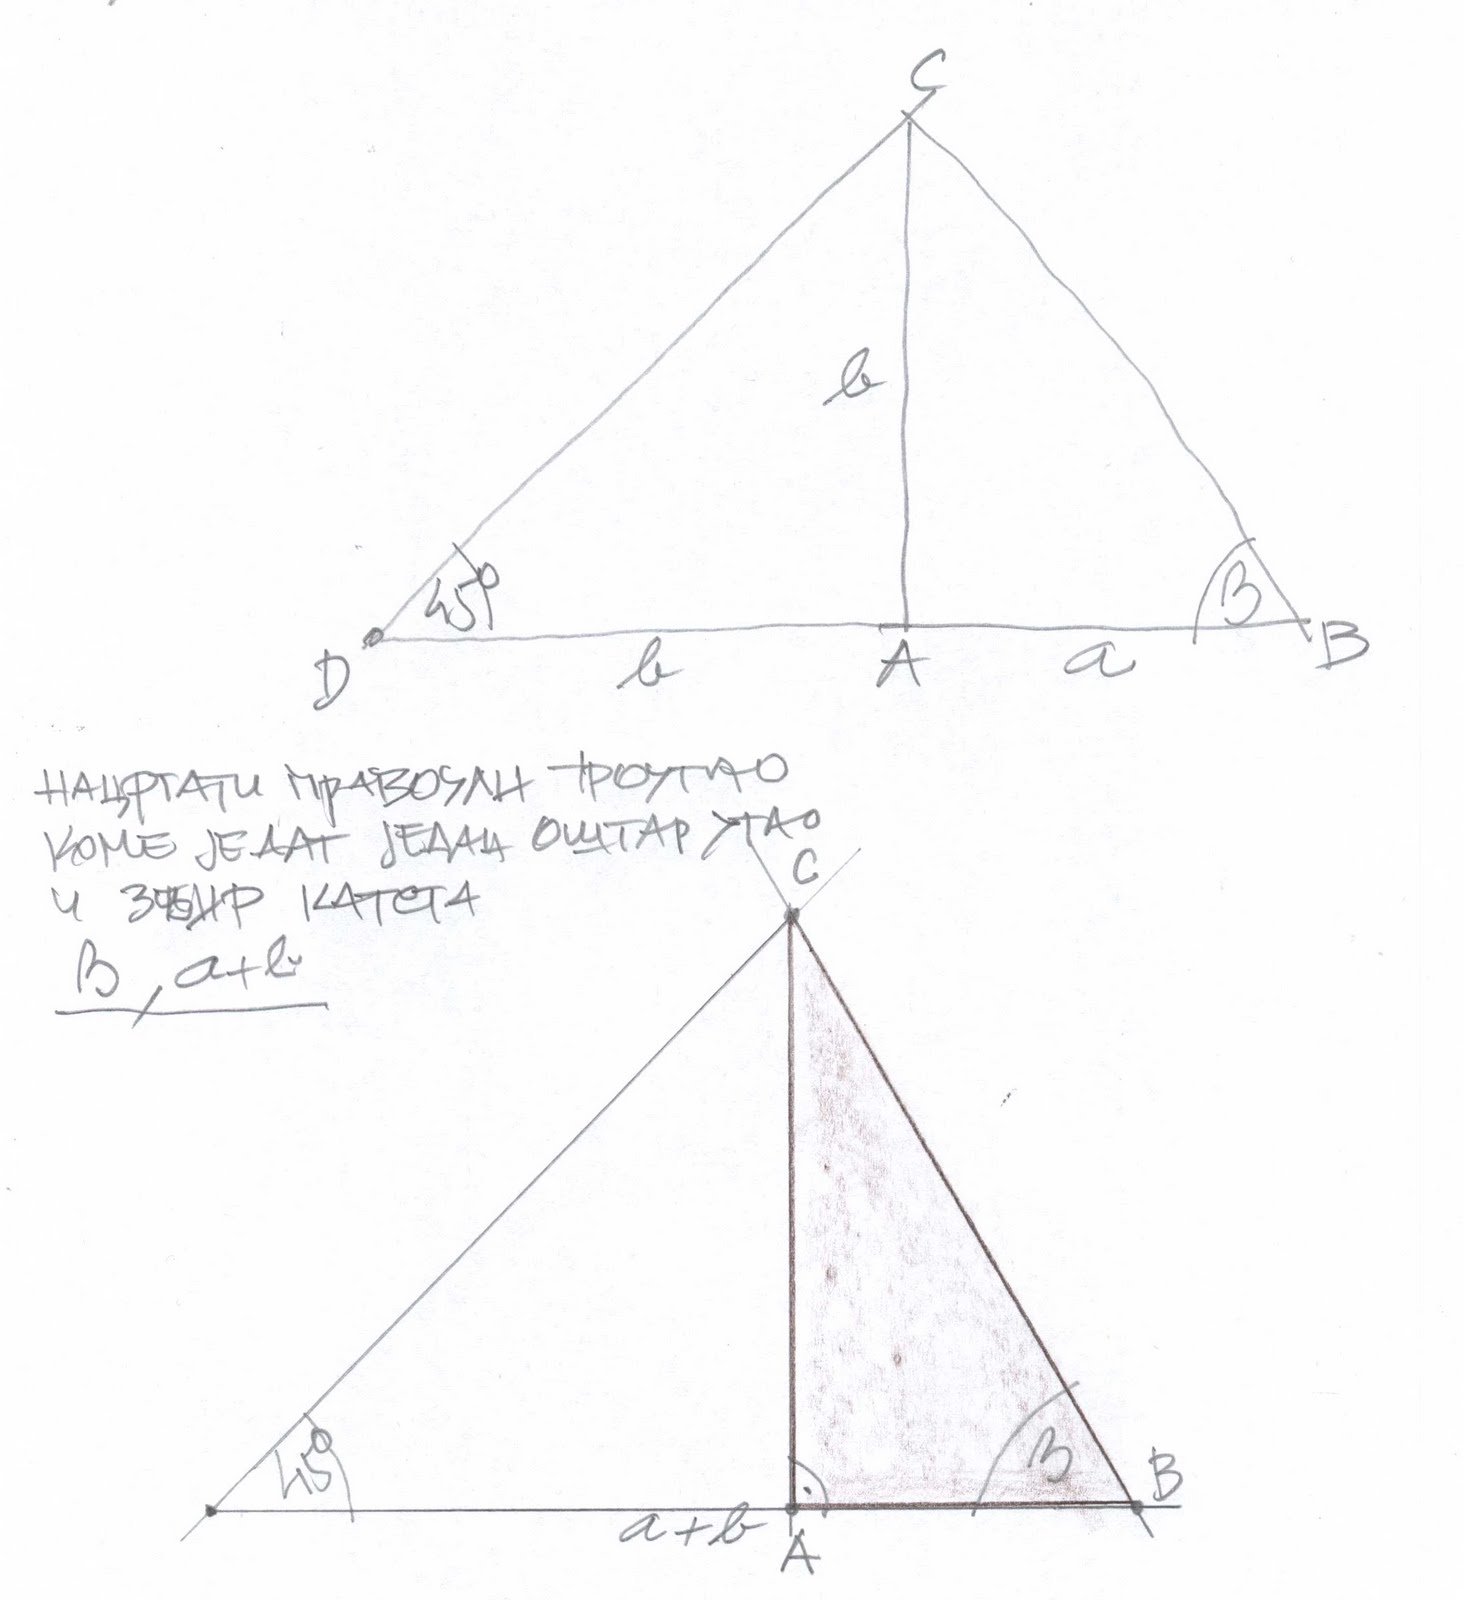 C
b
45°
β
D
b
A
a
B
НАЦРТАТИ ПРАВОУГЛИ ТРОУГАО
КОМЕ ЈЕ ДАТ ЈЕДАН ОШТАР УГАО
И ЗБИР КАТЕТА
β, a+b
C
45°
β
B
a+b
A